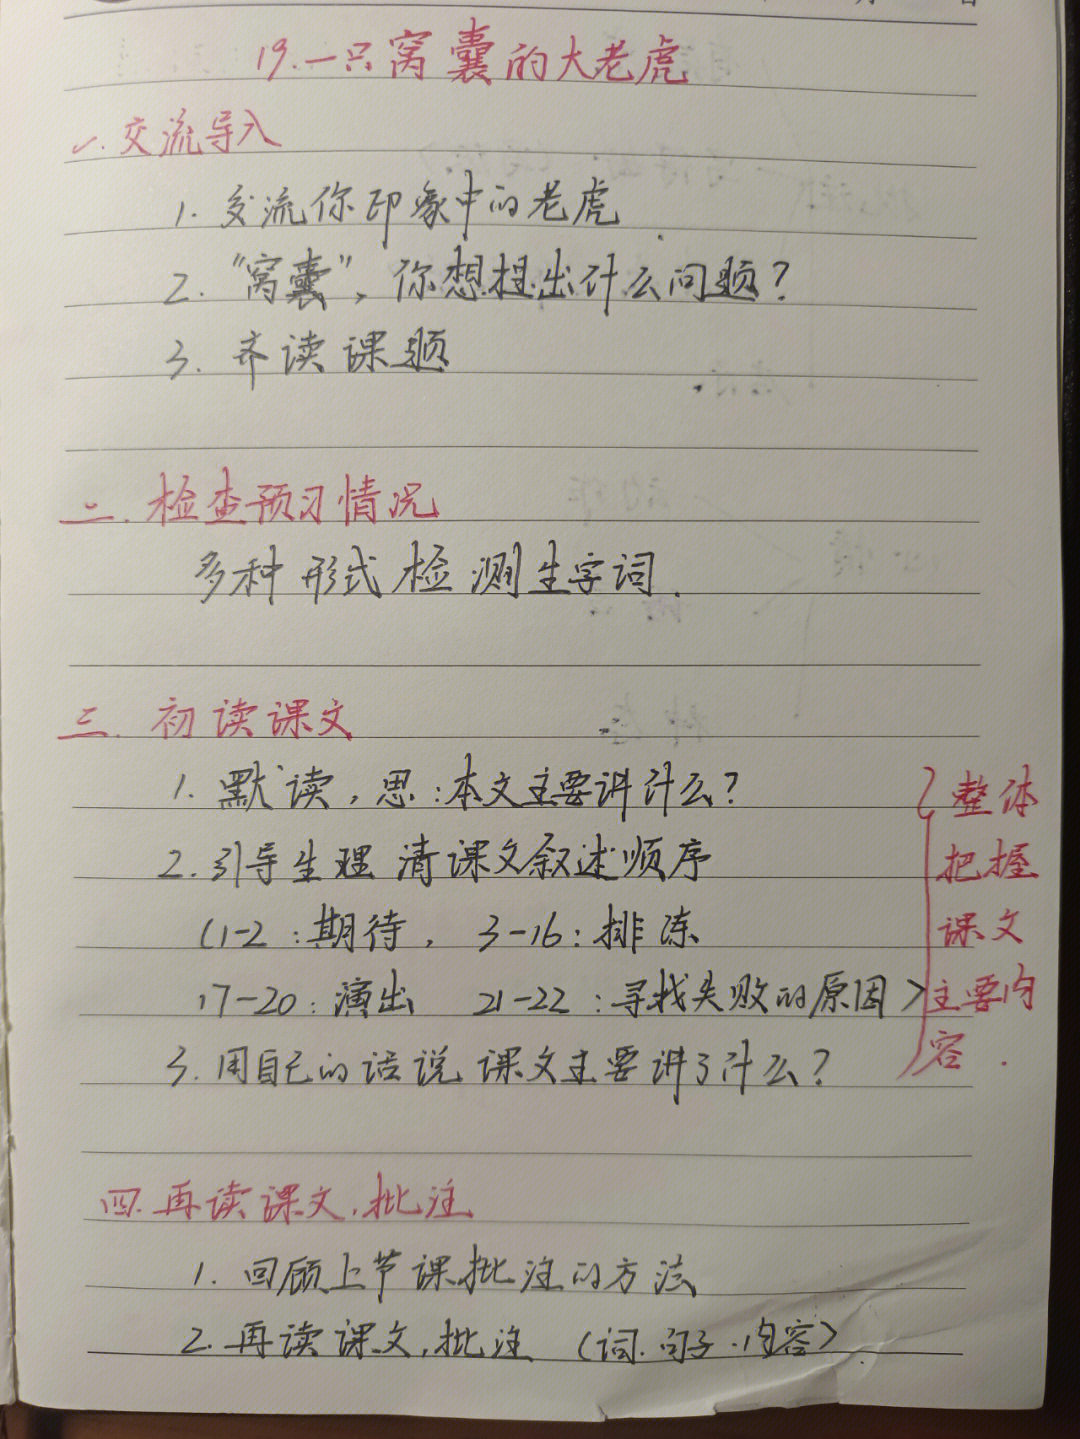 19.一只窝囊的大老虎
一.交流导入
1.交流你印象中的老虎
2.“窝囊”，你想提出什么问题?
3.齐读课题
二.检查预习情况
多种形式检测生字词.
三.初读课文
1.默读，思:本文主要讲什么?
2.引导生理清课文叙述顺序
(1-2:期待， 3-16:排练
17-20:演出 21-22:寻找失败的原因>
3.用自己的话说课文主要讲了什么?
整体
把握
课文
主要内
容.
四.再读课文，批注
1.回顾上节课批注的方法
2.再读课文，批注 (词.句子.内容>